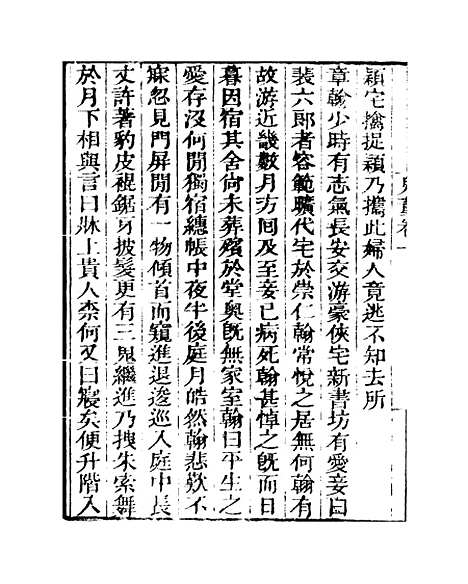 鬼董卷一
穎宅擒捉穎乃攜此婦人竟逃不知去所
章翰少時有志氣長安交游豪俠宅新書坊有愛妾曰
裴六郎者容範曠代宅於崇仁翰常悅之居無何翰有
故游近畿數月方囘及至妾已病死翰甚悼之旣而日
暮因宿其舍尙未葬殯於堂奧旣無家室翰曰平生之
愛存没何閒獨宿繐帳中夜半後庭月皓然翰悲歎不
寐忽見門屏閒有一物傾首而窺進退逡巡入庭中長
丈許著豹皮褌鋸牙披髮更有三鬼繼進乃拽朱索舞
於月下相與言曰牀上貴人柰何又曰寢矣便升階入